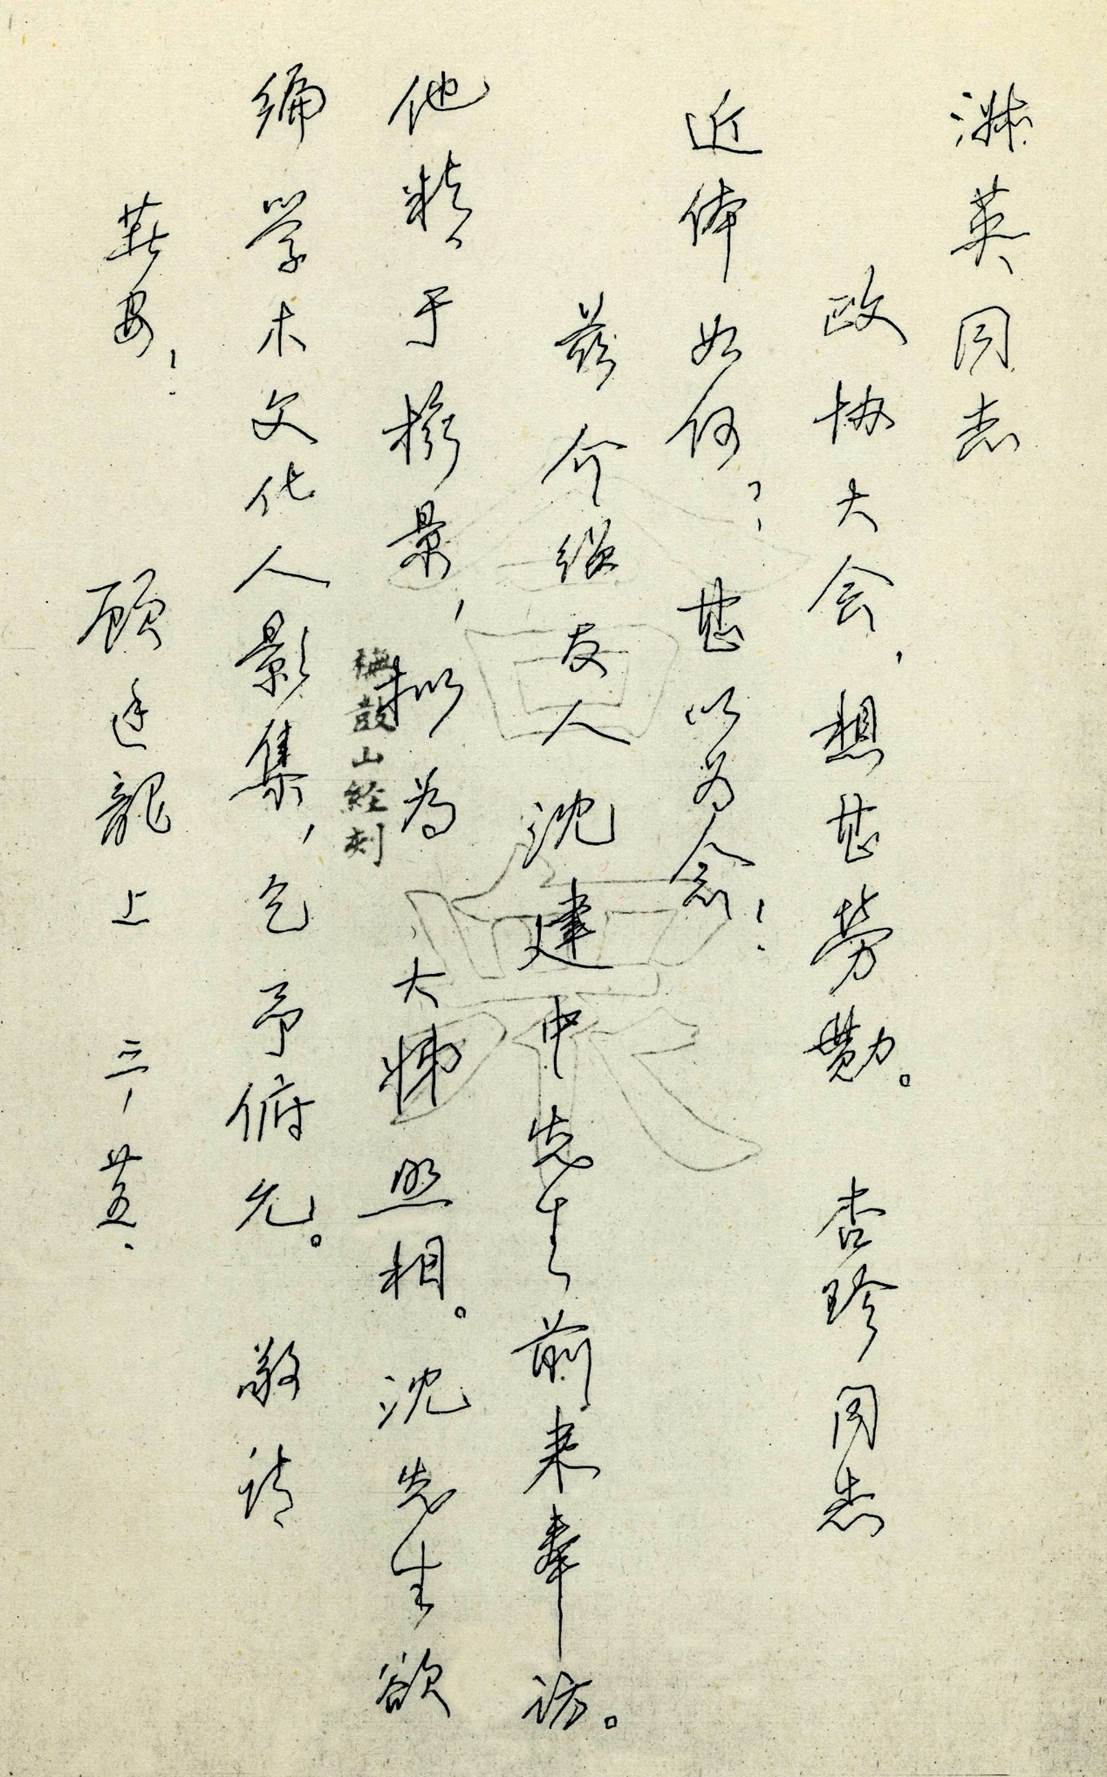 淑英同志
政协大会，想甚劳勚。杏珍同志
近体如何？甚以为念！
兹介绍友人沈建中先生前来奉访。
他精于摄影，拟为大姊照相。沈先生欲
编学术文化人影集，乞予俯允。敬请
著安！
顾廷龙上 三、廿五、
鼓山经刻